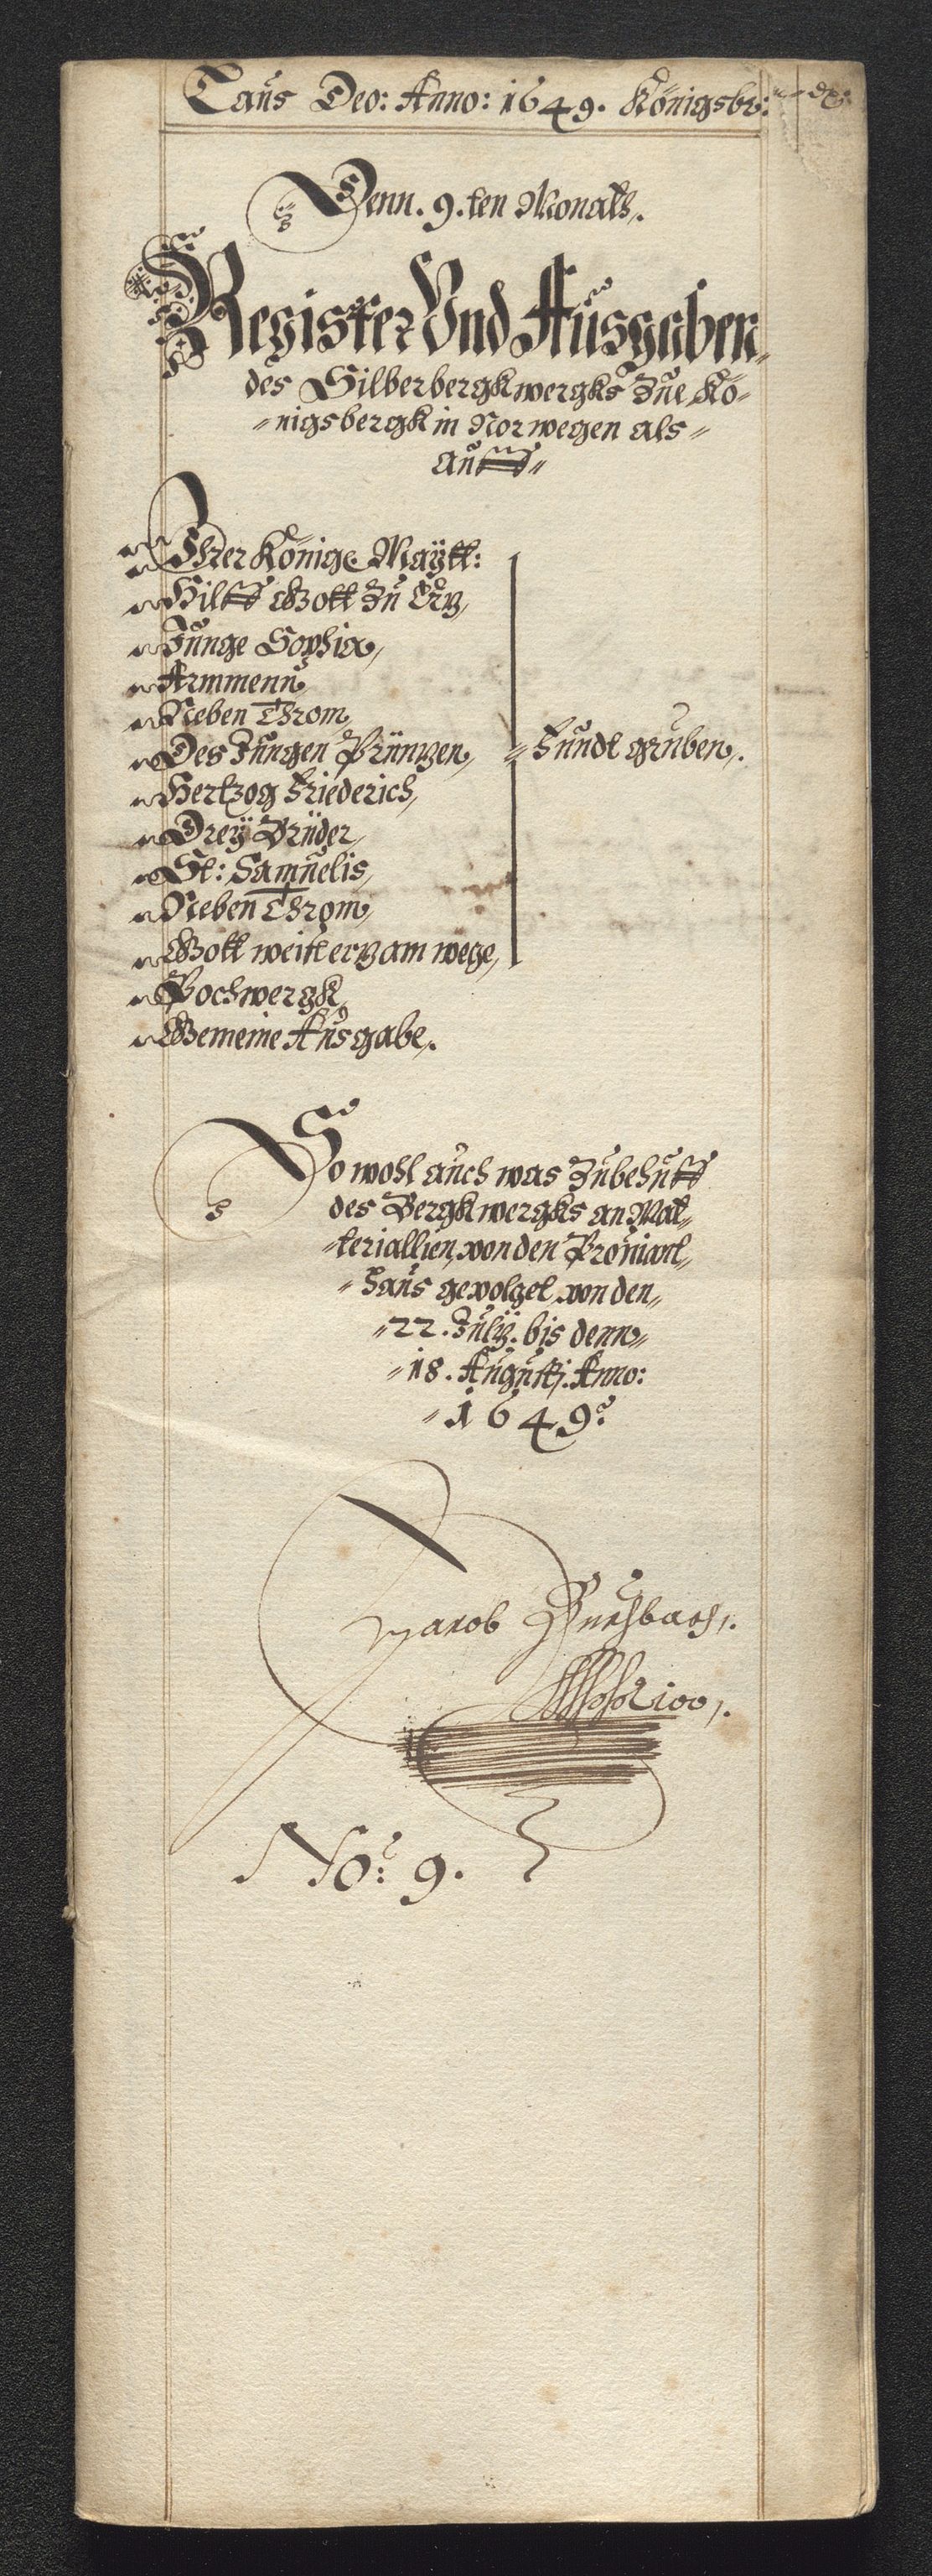 Laus Deo: Anno: 1649. Königsbr:
Denn. 9.ten Monats.
Register Vnd Ausgaben
des Silberbergkwergks Zue Kö-
nigsbergk in Norwegen als
auff
Jhrer Könige Maÿtt:
Hilff Gott Zu Ertz,
Junge Sophia,
Armmenn
Neben Throm,
Des Jungen Prüntzen,
Fundt gruben.
Hertzog Friederich,
Dreÿ Brüder,
St: Samuelis,
Neben Throm,
Gott weist ertz am wege,
Pochwergk
Gemeine Ausgabe.
So wohl auch was Zubehuff
des Bergkwergks an Mat-
teriallien, von den Proviant
Haus gevolget, von den
22. Julÿ. bis denn
18. Augustj. Anno:
1649.
Jacob
No: 9.